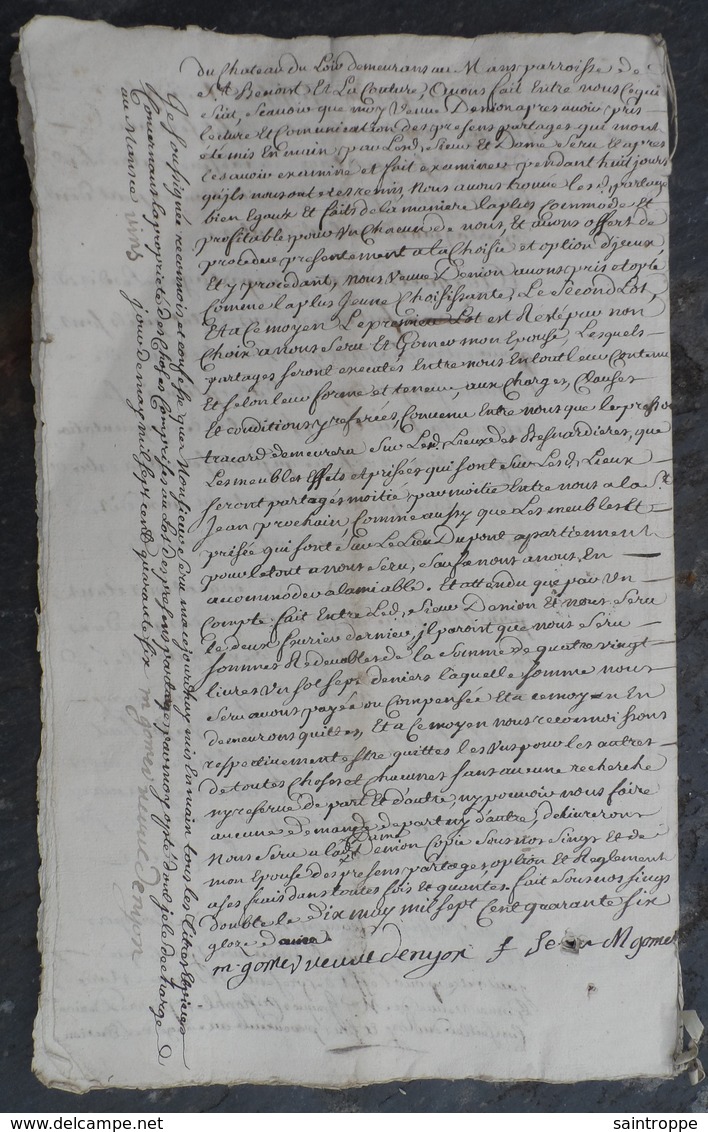 du Chateau du Loir demeurans au Mans parroisse de
St Benoist Et La Couture, Avons fait Entre nous Ce qui
suit, scavoir que moy Veuve Denion apres avoir pris
lecture Et Communication des presens partages qui mont
été mis En main par Lesd. sieur Et Dame Seru Et apres
les avoir examiné et fait examiner pendant huit jours
quils nous ont etes remis, Nous avons trouvé les d. partages
bien Egaux Et faits de la maniere la plus Commode Et
profitable pour Un Chacun de nous, Et avons offert de
proceder presentement a la Choisie et option d'yceux
Et y procedant, nous Veuve Denion avons pris et opté
Comme la plus Jeune Choisissante, Le Second Lot,
Et a Ce moyen Le premier Lot est Resté par non
Choix a nous Seru Et Gomer mon Epouse, Lesquels
partages seront executés Entre nous En tout leur Contenu
Et selon leur forme et teneur, aux Charges, Clauses
Et conditions y referées, Convenu Entre nous que le pressoir
tracard demeurera Sur Lesd. Lieux des Besnardieres, que
Les meubles Effets et prisées qui sont sur Lesd. Lieux
seront partagés moitié par moitié Entre nous a la St
Jean prochain, Comme aussy que Les meubles Et
prisée qui sont sur Le Lieu Dupont apartiennent
pour le tout a nous Seru, sauf a nous a nous En
accommoder a lamiable. Et attendu que par Un
Compte fait Entre Led. sieur Denion Et nous Seru
Le deux fevrier dernier, il paroist que nous Seru
sommes Redevables de la Somme de quatre vingt
livres Un sol sept deniers laquelle somme nous
Seru avons payée ou Compensée Et a ce moyen En
demeurons quittes, Et a Ce moyen nous reconnoissons
respectivement Estre quittes les Uns pour les autres
de toutes Choses et Chaunes sans aucune recherche
ny reserve de part Et d'autre, ny pouvoir nous faire
aucune demande de part ny d'autre, delivrerons
Nous Seru a lad. Dame Denion Copie sous nos sings Et de
mon Epouse des presens partages, option et Reglement
a ses frais dans toutes fois et quantes. fait sous nos sings
double le dix may mil sept Cent quarante six
gloze
m gomer veuve denyon Seru M gomer
Je soussignée reconnois et confesse que Monsieur Seru ma cejourdhuy mis En main tous les titres et pieces
Concernant la proprieté des choses Comprises au Lot des presens partages par moy opté dont je le decharge
au Mans ce vint jour de may mil sept cent quarante six m gomer veuve denyon